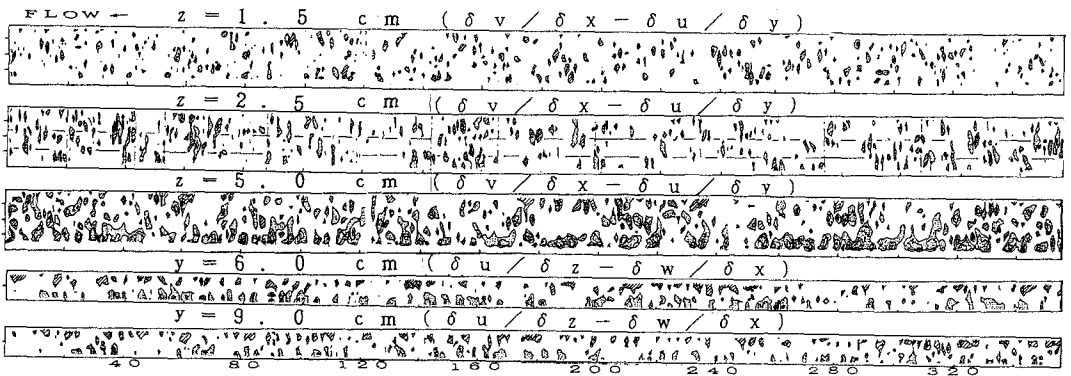 FLOW ← z = 1.5 cm (δv/δx−δu/δy)
z = 2.5 cm (δv/δx−δu/δy)
z = 5.0 cm (δv/δx−δu/δy)
y = 6.0 cm (δu/δz−δw/δx)
y = 9.0 cm (δu/δz−δw/δx)
40 80 120 160 200 240 280 320